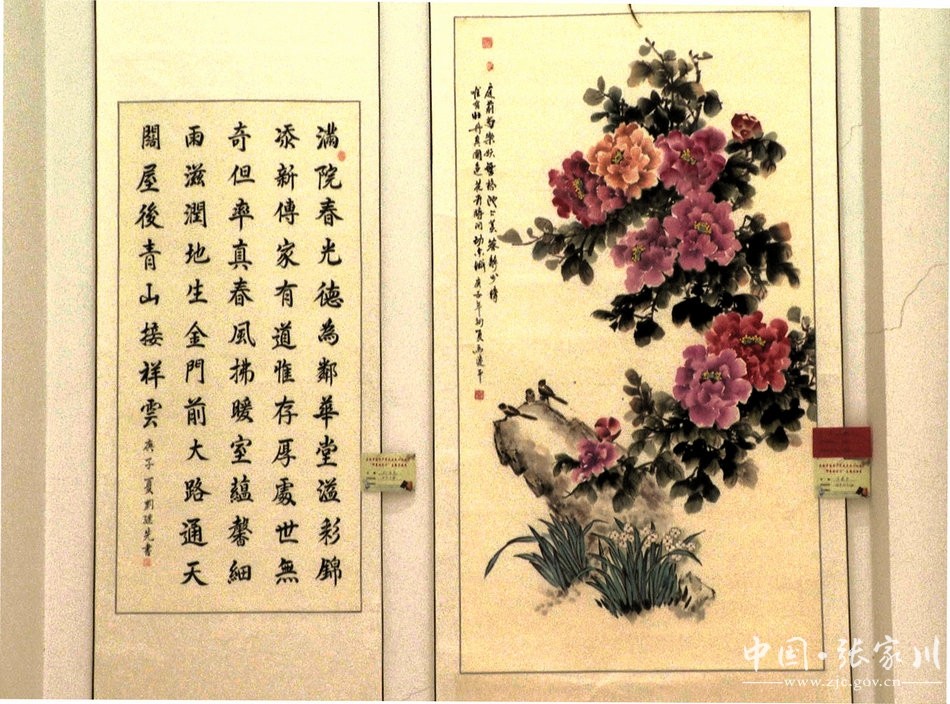 滿院春光德為鄰華堂溢彩錦
添新傳家有道惟存厚處世無
奇但率真春風拂暖室蘊馨細
雨滋潤地生金門前大路通天
闊屋後青山接祥雲 庚子夏劉先書
庭前芍藥妖無格池上芙蕖淨少情
唯有牡丹真國色花開時節動京城 庚子年初夏
中国·张家川
www.zjc.gov.cn